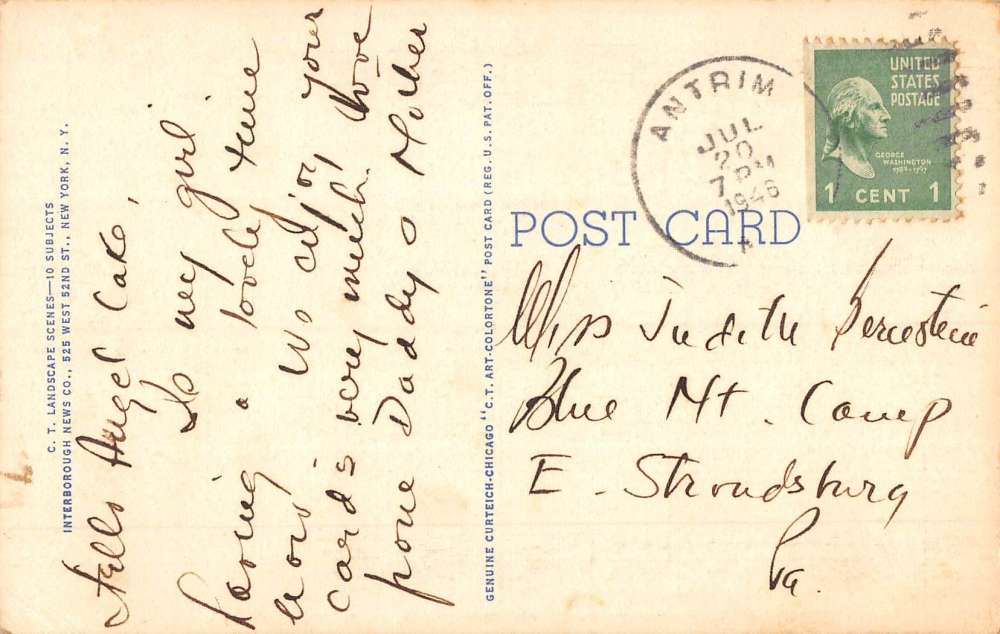 C. T. LANDSCAPE SCENES—10 SUBJECTS
INTERBOROUGH NEWS CO., 525 WEST 52ND ST., NEW YORK, N. Y.
Hello Angel Cake,
Is my girl
having a lovely time
now We enjoy your
card's very much. Love
from Daddy & Mother
GENUINE CURTEICH-CHICAGO "C. T. ART-COLORTONE" POST CARD (REG. U. S. PAT. OFF.)
POST CARD
ANTRIM
JUL
20
7 PM
1946
UNITED
STATES
POSTAGE
GEORGE
WASHINGTON
1789-1797
1 CENT 1
Miss Judith
Blue Mt. Camp
E. Stroudsburg
Pa.